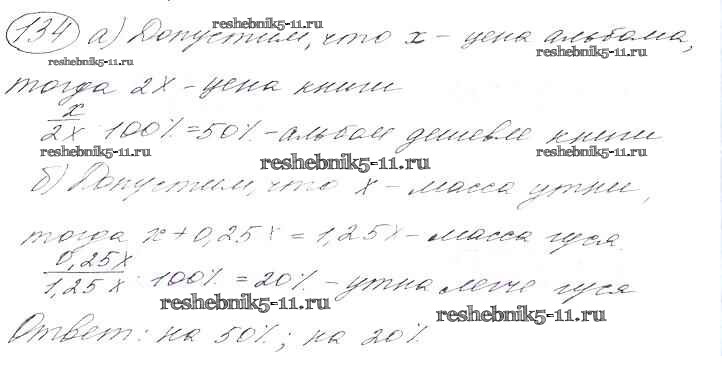 134 а) Допустим, что x - цена альбома,
тогда 2x - цена книги
x/2x · 100% = 50% - альбом дешевле книги
б) Допустим, что x - масса утки,
тогда x + 0,25x = 1,25x - масса гуся.
0,25x/1,25x · 100% = 20% - утка легче гуся
Ответ: на 50%; на 20%
reshebnik5-11.ru
reshebnik5-11.ru
reshebnik5-11.ru
reshebnik5-11.ru
reshebnik5-11.ru
reshebnik5-11.ru
reshebnik5-11.ru
reshebnik5-11.ru